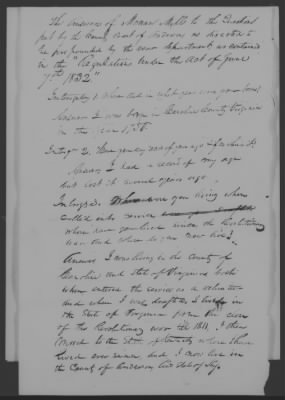 The answers of Moses Mills to the Questions
put by the County Court of Anderson as directed to
be propounded by the war department as contained
in the "Regulations under the Act of June
7th 1832"
Interrogatory 1 Where and in what year were you born?
Answer I was born in Caroline County Virginia
in the year 1756
Interogy 2. Have you any record of your age &
Answer I had a record of my age
but lost it several years ago.
Interog 3. Where were you living when
called into service
where have you lived since the Revolutionary
war And where do you now live?
Answer I was living in the County of
Caroline and State of Virginia both
when entered the service as a volunteer
And when I was drafted I lived in
the State of Virginia from the close
of the Revolutionary war till 1811, I then
moved to the State of Kentucky where I have
lived ever since, and I now live in
the County of Anderson and State of Ky.